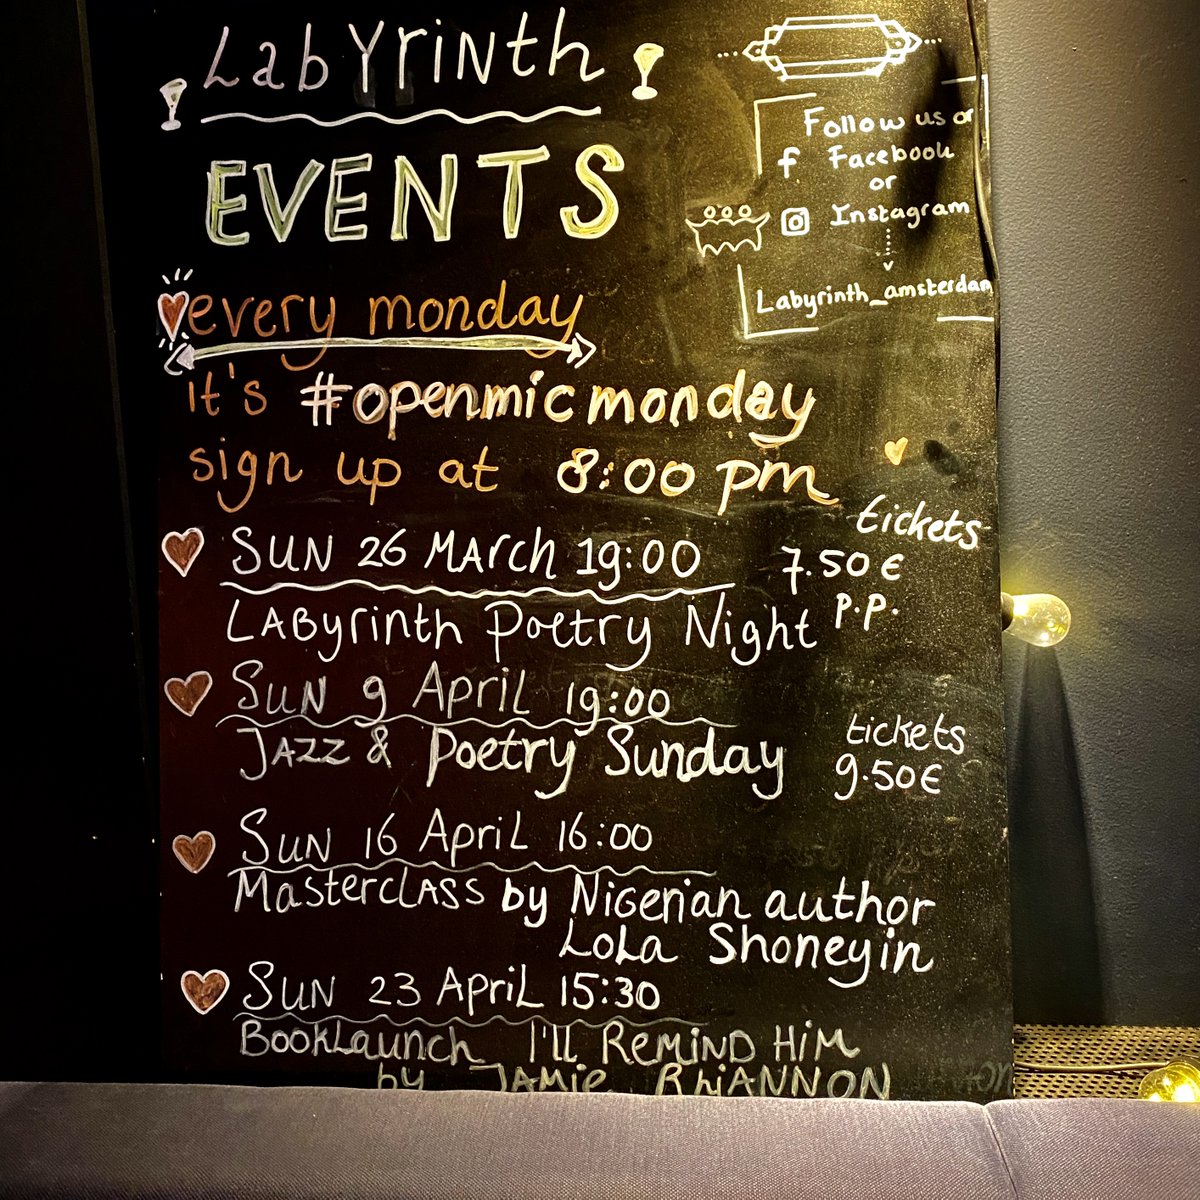 Labyrinth
EVENTS
Follow us on
f Facebook
or
Instagram
Labyrinth_amsterdam
every monday
it's #openmicmonday
sign up at 8:00 pm
SUN 26 March 19:00
tickets
7.50€
p.p.
Labyrinth Poetry Night
SUN 9 April 19:00
Jazz & Poetry Sunday
tickets
9.50€
SUN 16 April 16:00
Masterclass by Nigerian author
Lola Shoneyin
SUN 23 April 15:30
Booklaunch I'll Remind Him
by Jamie Rhiannon